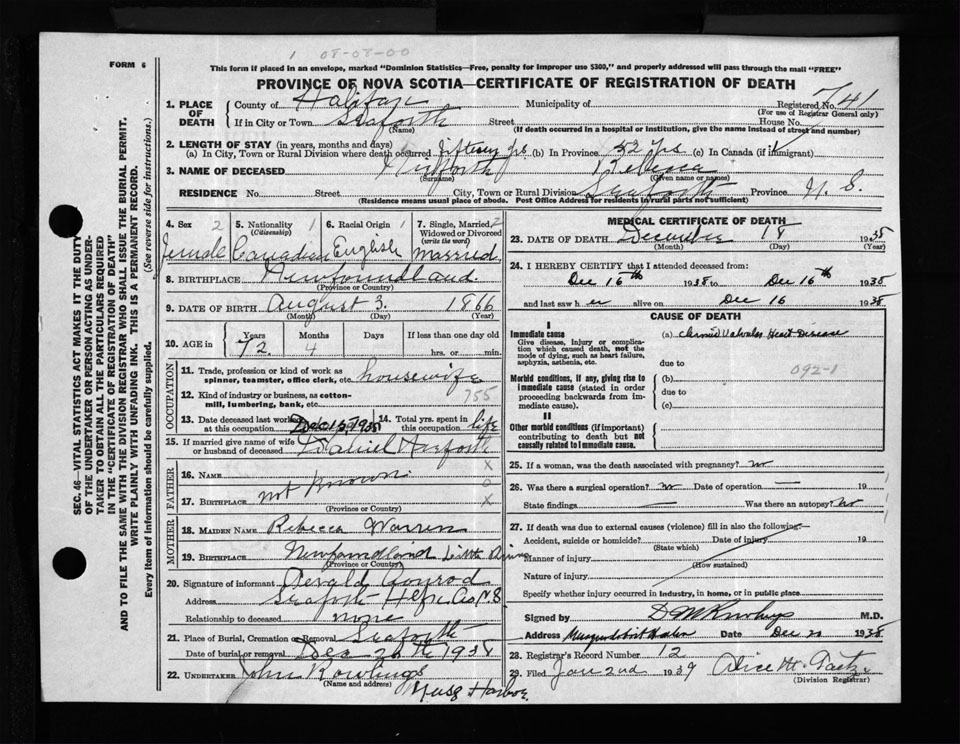 1 08-08-00
FORM 6
This form if placed in an envelope, marked "Dominion Statistics—Free, penalty for improper use $300," and properly addressed will pass through the mail "FREE"
PROVINCE OF NOVA SCOTIA—CERTIFICATE OF REGISTRATION OF DEATH
SEC. 46—VITAL STATISTICS ACT MAKES IT THE DUTY
OF THE UNDERTAKER OR PERSON ACTING AS UNDER-
TAKER TO OBTAIN ALL THE PARTICULARS REQUIRED
IN THE "CERTIFICATE OF REGISTRATION OF DEATH"
AND TO FILE THE SAME WITH THE DIVISION REGISTRAR WHO SHALL ISSUE THE BURIAL PERMIT.
WRITE PLAINLY WITH UNFADING INK. THIS IS A PERMANENT RECORD.
Every item of information should be carefully supplied. (See reverse side for instructions.)
1. PLACE OF DEATH
County of Halifax Municipality of Registered No. 741
(For use of Registrar General only)
If in City or Town Seaforth Street House No.
(Name) (If death occurred in a hospital or institution, give the name instead of street and number)
2. LENGTH OF STAY (in years, months and days)
(a) In City, Town or Rural Division where death occurred yrs (b) In Province 52 yrs (c) In Canada (if immigrant)
3. NAME OF DECEASED
(Surname) (Given name or names)
RESIDENCE No. Street City, Town or Rural Division Seaforth Province N. S.
(Residence means usual place of abode. Post Office Address for residents in rural parts not sufficient)
4. Sex 2
Female
5. Nationality 1
(Citizenship)
Canadian
6. Racial Origin 1
English
7. Single, Married, 2
Widowed or Divorced
(write the word)
Married
8. BIRTHPLACE Newfoundland.
(Province or Country)
9. DATE OF BIRTH August 3. 1866
(Month) (Day) (Year)
10. AGE in Years Months Days If less than one day old
72 4 hrs. or min.
OCCUPATION
11. Trade, profession or kind of work as
spinner, teamster, office clerk, etc. housewife
12. Kind of industry or business, as cotton-
mill, lumbering, bank, etc. 755
13. Date deceased last worked
at this occupation. Dec 15, 1938
14. Total yrs. spent in
this occupation life
15. If married give name of wife
or husband of deceased Daniel
FATHER
16. NAME not known X
O
17. BIRTHPLACE X
(Province or Country)
MOTHER
18. MAIDEN NAME Rebecca Warren
19. BIRTHPLACE Newfoundland
(Province or Country)
20. Signature of informant Gerald Conrod
Address Seaforth Hfx Co N.S
Relationship to deceased none
21. Place of Burial, Cremation or Removal Seaforth
Date of burial or removal Dec 20th 1938
22. UNDERTAKER John Rowlings
(Name and address) Musq Harbor
MEDICAL CERTIFICATE OF DEATH
23. DATE OF DEATH December 18 1938
(Month) (Day) (Year)
24. I HEREBY CERTIFY that I attended deceased from:
Dec 16th 1938 to Dec 16th 1938
and last saw h er alive on Dec 16 1938
CAUSE OF DEATH
I
Immediate cause
Give disease, injury or complica-
tion which caused death, not the
mode of dying, such as heart failure,
asphyxia, asthenia, etc.
(a) Chronic Valvular Heart Disease
due to
092-1
Morbid conditions, if any, giving rise to
immediate cause (stated in order
proceeding backwards from im-
mediate cause).
(b)
due to
(c)
II
Other morbid conditions (if important)
contributing to death but not
causally related to immediate cause.
25. If a woman, was the death associated with pregnancy? no
26. Was there a surgical operation? no Date of operation — 19
State findings Was there an autopsy? no
27. If death was due to external causes (violence) fill in also the following:—
Accident, suicide or homicide? Date of injury 19
(State which)
Manner of injury
(How sustained)
Nature of injury
Specify whether injury occurred in industry, in home, or in public place
Signed by M.D.
Address Date Dec 20 1938
28. Registrar's Record Number 12
29. Filed Jan 2nd 1939 Alice M. Gaetz
(Division Registrar)